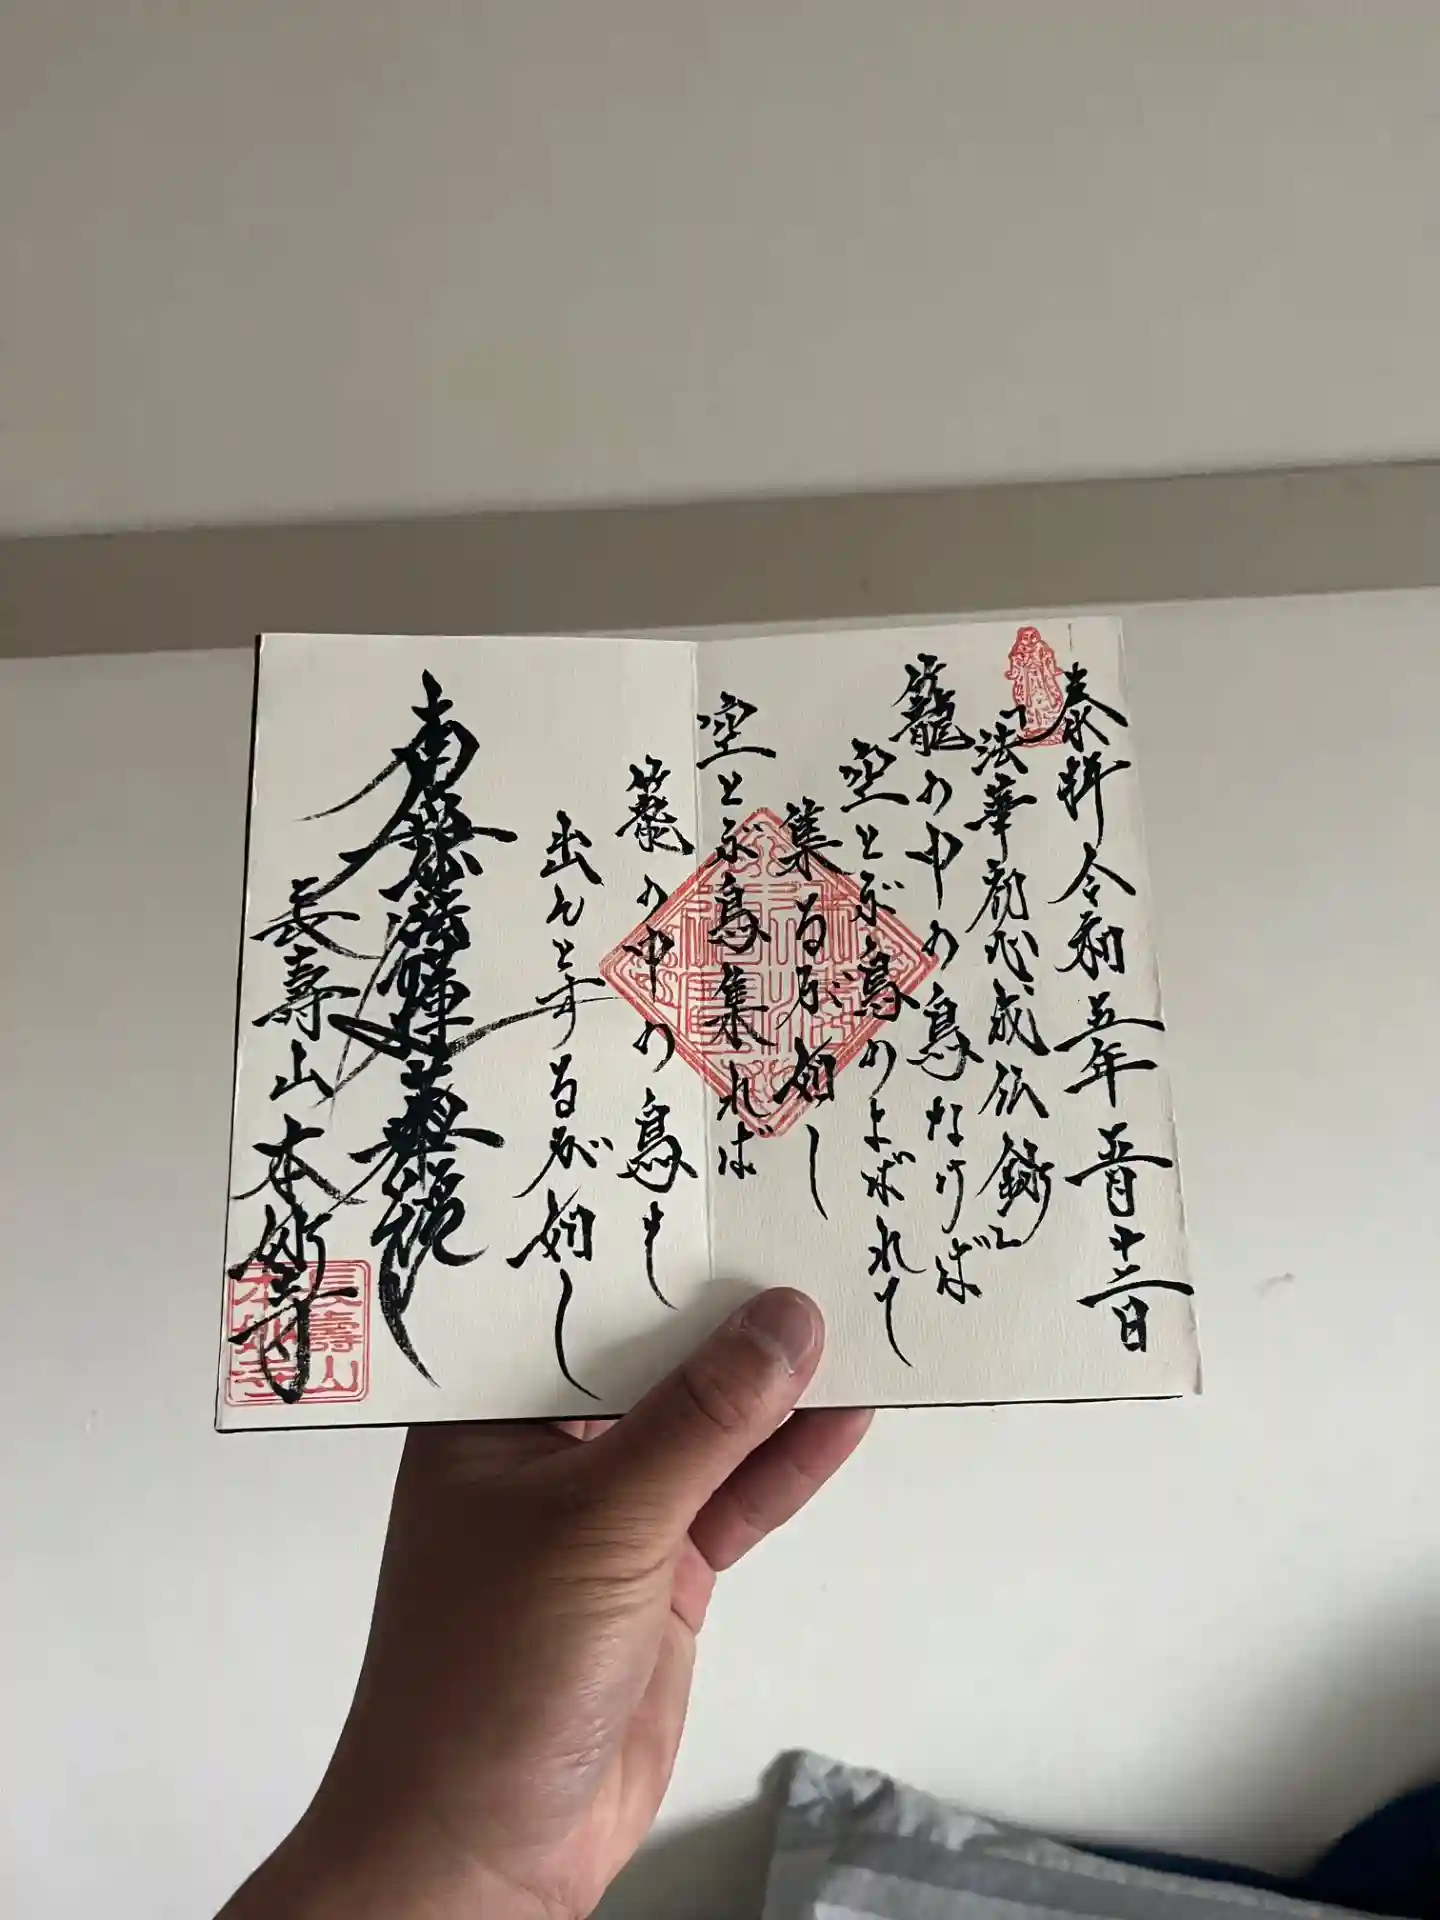 奉拝 令和五年 五月十二日
「法華初心成仏鈔」
籠の中の鳥なけば
空とぶ鳥のよばれて
集るが如し
空とぶ鳥集れば
籠の中の鳥も
出んとするが如し
南無妙法蓮華経
長壽山本妙寺
長壽山
本妙寺